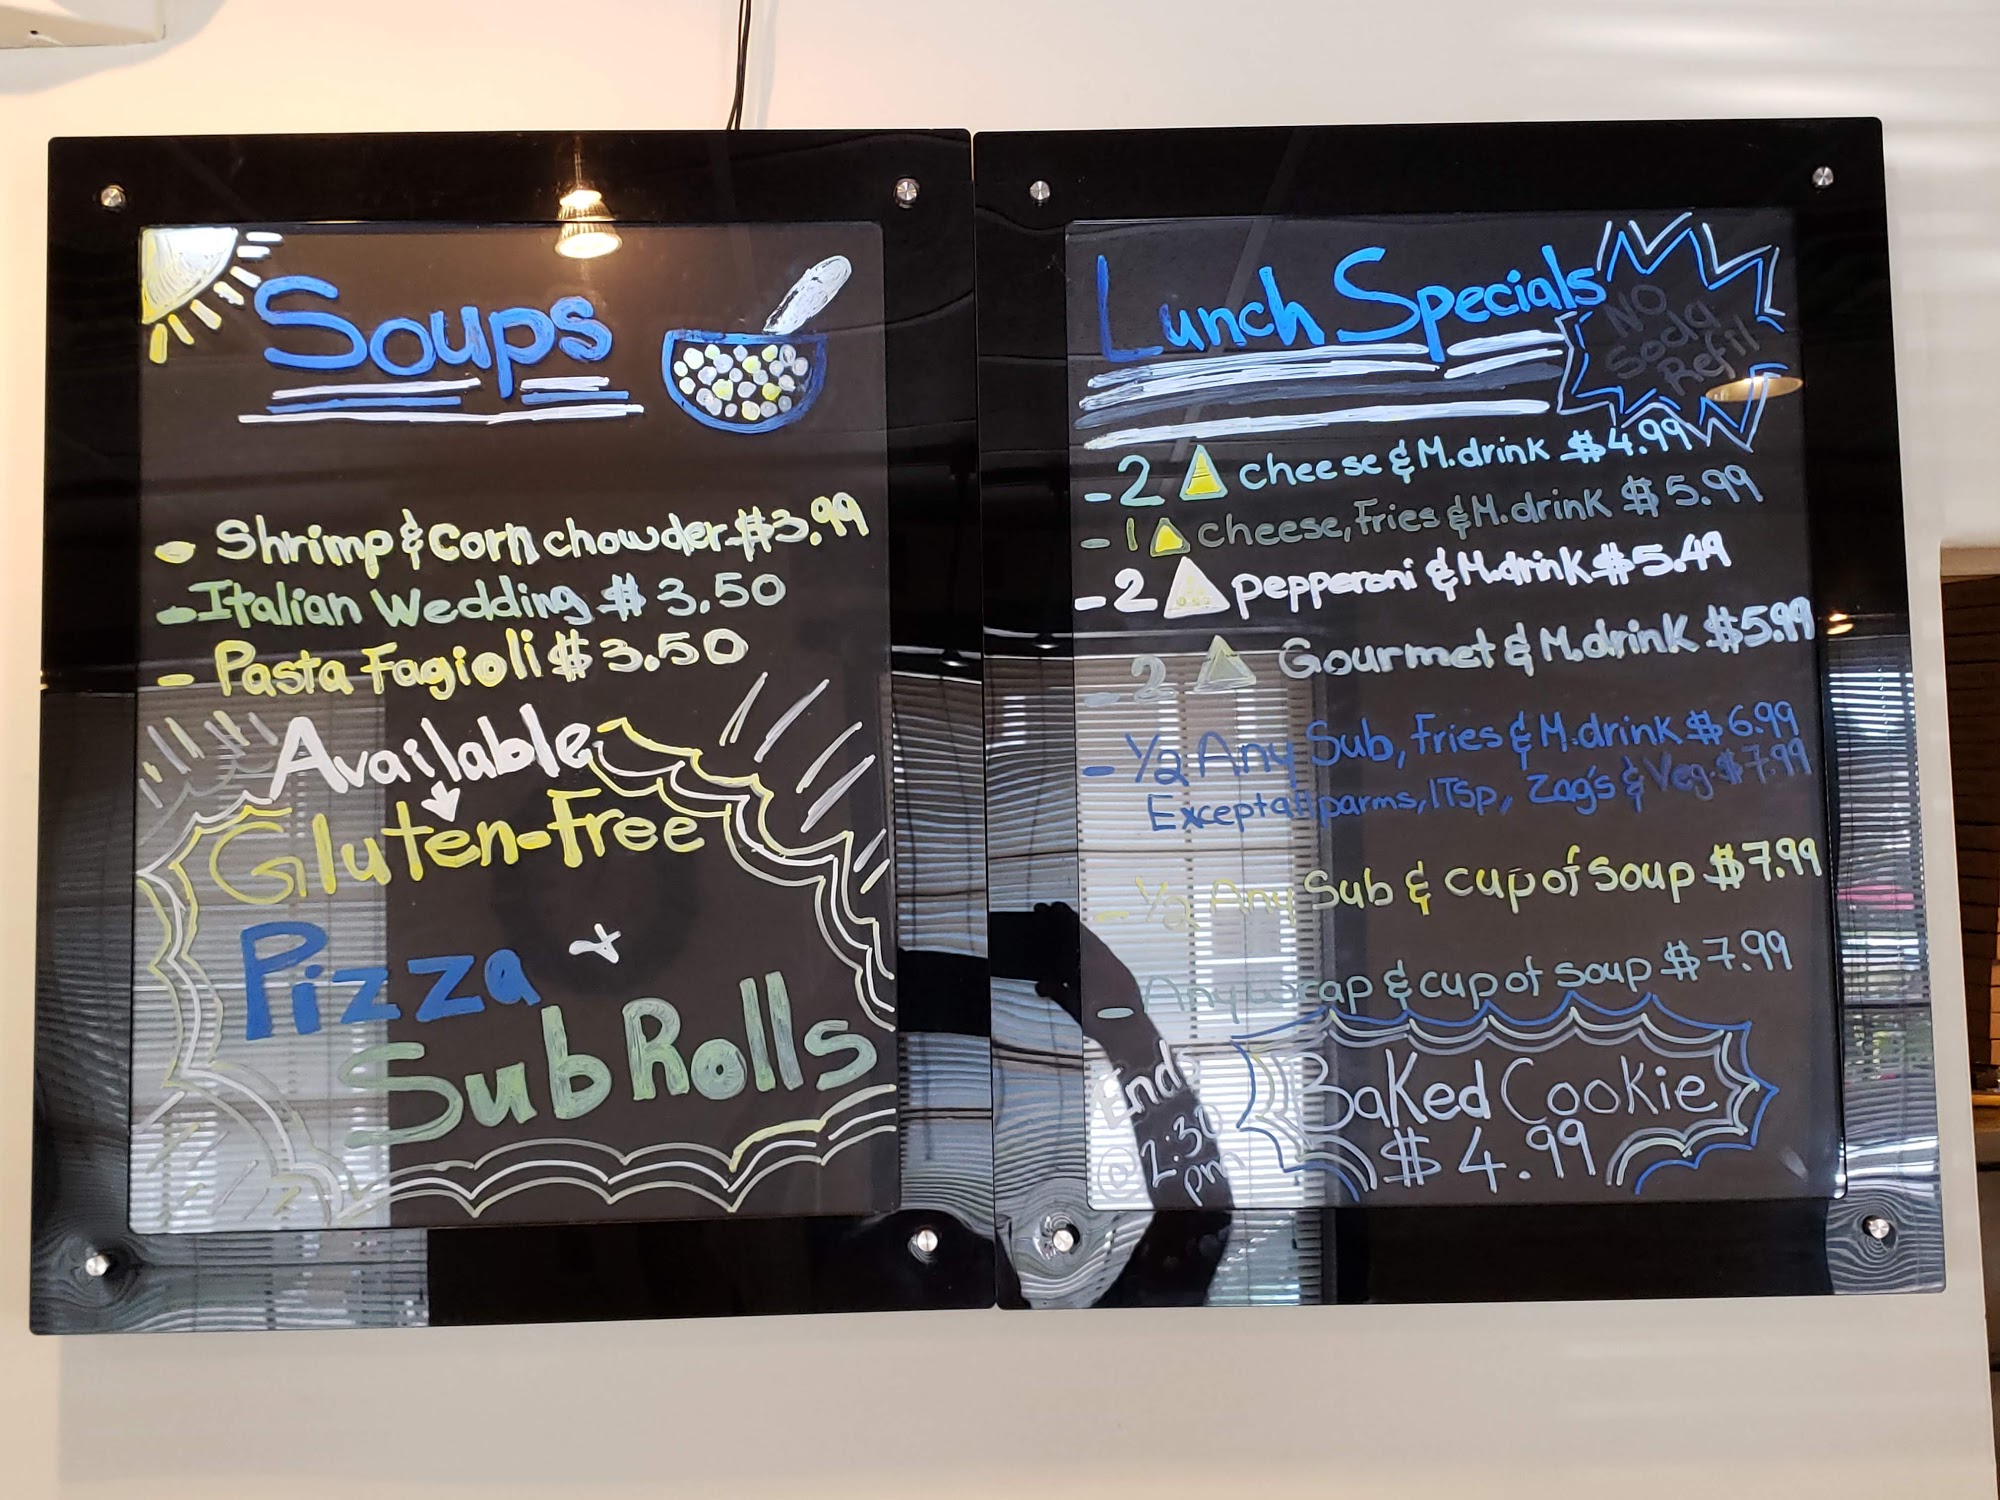 Soups
- Shrimp & Corn chowder $3.99
- Italian Wedding $ 3.50
- Pasta Fagioli $ 3.50
Available
Gluten-Free
Pizza +
Sub Rolls
Lunch Specials
NO
Soda
Refil
- 2 Cheese & M.drink $4.99
- 1 Cheese, Fries & M.drink $5.99
- 2 pepperoni & M.drink $5.49
- 2 Gourmet & M.drink $5.99
- 1/2 Any Sub, Fries & M.drink $6.99
Except all parms, ITsp, Zag's & Veg. $7.99
- 1/2 Any Sub & cup of soup $7.99
- Any wrap & cup of soup $7.99
Ends
@ 2:30
pm
Baked Cookie
$4.99